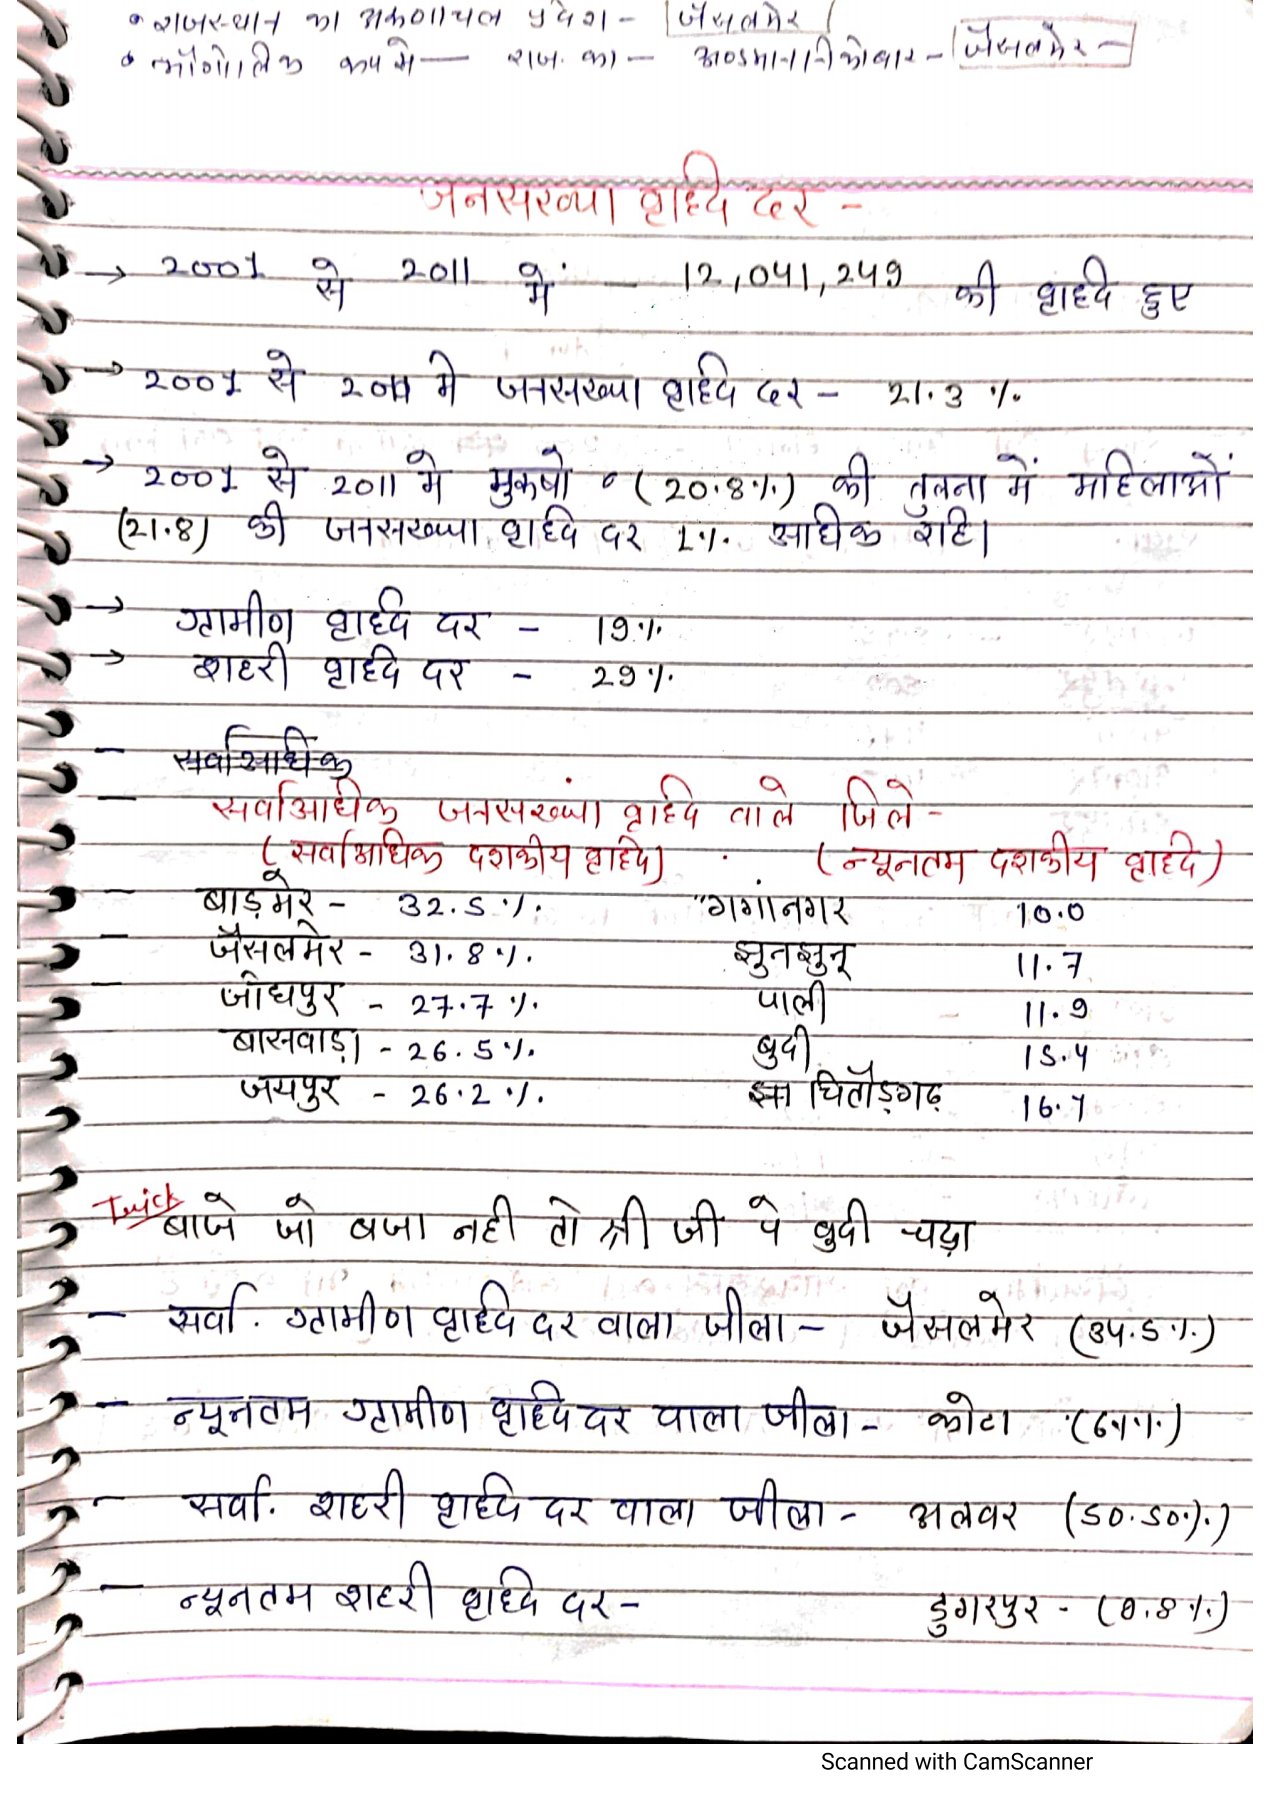 • राजस्थान का अरुणाचल प्रदेश - जैसलमेर
• भौगोलिक रूप से — राज. का — अण्डमान निकोबार - जैसलमेर -
जनसख्या वृद्धि दर -
→ 2001 से 2011 में - 12,041,249 की वृद्धि हुए
→ 2001 से 2011 मे जनसख्या वृद्धि दर - 21.3 %
→ 2001 से 2011 मे पुरुषो (20.8%) की तुलना में महिलाओं
(21.8) की जनसख्या वृद्धि दर 1%. अधिक रहि।
→ ग्रामीण वृद्धि दर - 19%
→ शहरी वृद्धि दर - 29%
- सर्वाअधिक
- सर्वाअधिक जनसख्यां वृद्धि वाले जिले -
(सर्वाअधिक दशकीय वृद्धि) (न्यूनतम दशकीय वृद्धि)
- बाड़मेर - 32.5 %. गगांनगर 10.0
- जैसलमेर - 31.8 %. झुनझुनू 11.7
- जोधपुर - 27.7 %. पाली 11.9
बासवाड़ा - 26.5 %. बुदी 15.4
जयपुर - 26.2 %. चितौड़गढ़ 16.1
Trick बाजे जो बजा नही तो श्री जी पे बुदी चढ़ा
- सर्वा. ग्रामीण वृद्धि दर वाला जीला - जैसलमेर (34.5%)
- न्यूनतम ग्रामीण वृद्धि दर वाला जीला - कोटा (6.1%)
- सर्वा. शहरी वृद्धि दर वाला जीला - अलवर (50.50%)
- न्यूनतम शहरी वृद्धि दर - डुगरपुर - (9.8%)
Scanned with CamScanner